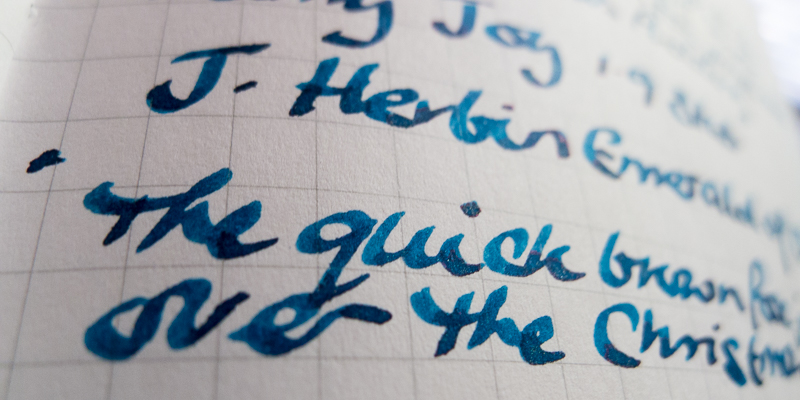 Joy
J. Herbin Emerald of
The quick brown fox
over the Christmas